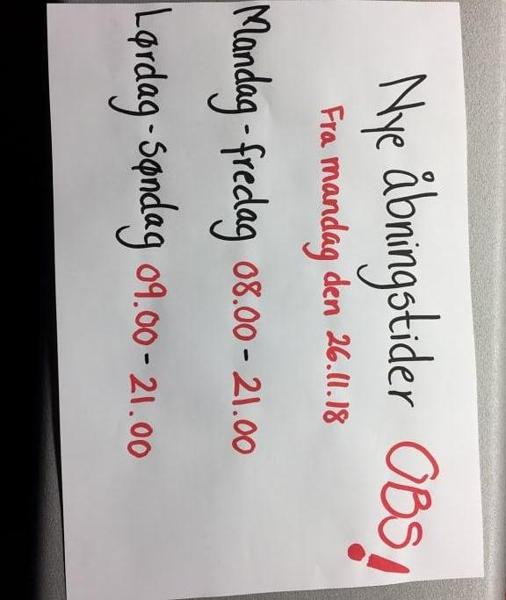 Nye åbningstider OBS!
Fra mandag den 26.11.18
Mandag - fredag 08.00 - 21.00
Lørdag - søndag 09.00 - 21.00